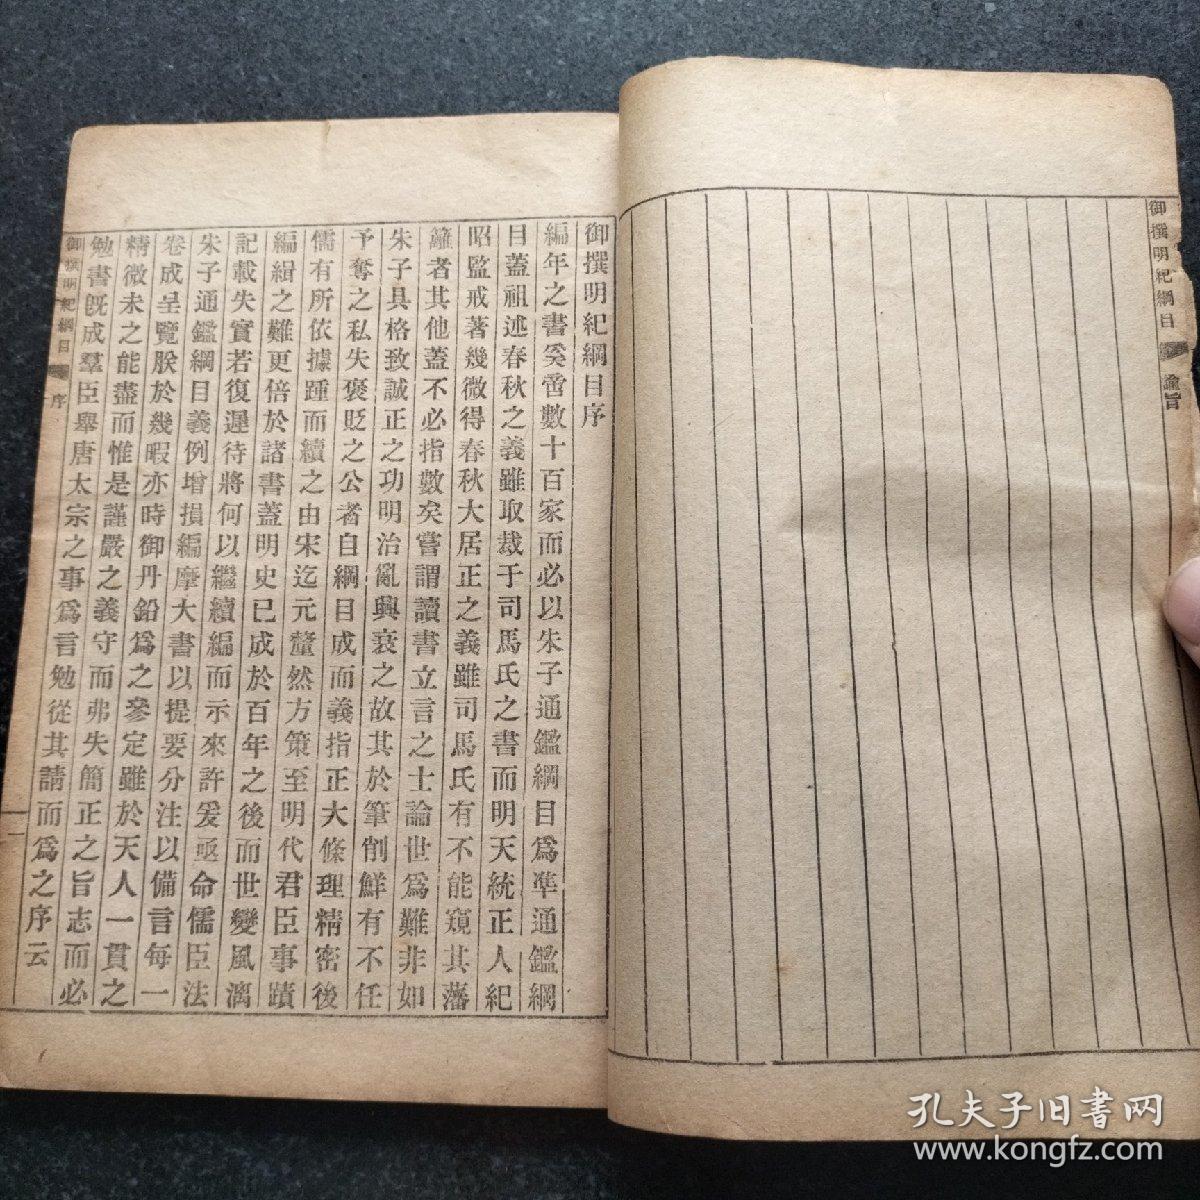 御撰明紀綱目
諭旨
御撰明紀綱目序
編年之書奚啻數十百家而必以朱子通鑑綱目爲凖通鑑綱
目蓋祖述春秋之義雖取裁于司馬氏之書而明天統正人紀
昭監戒著幾微得春秋大居正之義雖司馬氏有不能窺其藩
籬者其他蓋不必指數矣嘗謂讀書立言之士論世爲難非如
朱子具格致誠正之功明治亂興衰之故其於筆削鮮有不任
予奪之私失褒貶之公者自綱目成而義指正大條理精密後
儒有所依據踵而續之由宋迄元釐然方策至明代君臣事蹟
編緝之難更倍於諸書蓋明史已成於百年之後而世變風漓
記載失實若復遲待將何以繼續編而示來許爰亟命儒臣法
朱子通鑑綱目義例增損編摩大書以提要分注以備言每一
卷成呈覽朕於幾暇亦時御丹鉛爲之參定雖於天人一貫之
精微未之能盡而惟是謹嚴之義守而弗失簡正之旨志而必
勉書旣成羣臣舉唐太宗之事爲言勉從其請而爲之序云
御撰明紀綱目
序
一
孔夫子旧书网
www.kongfz.com